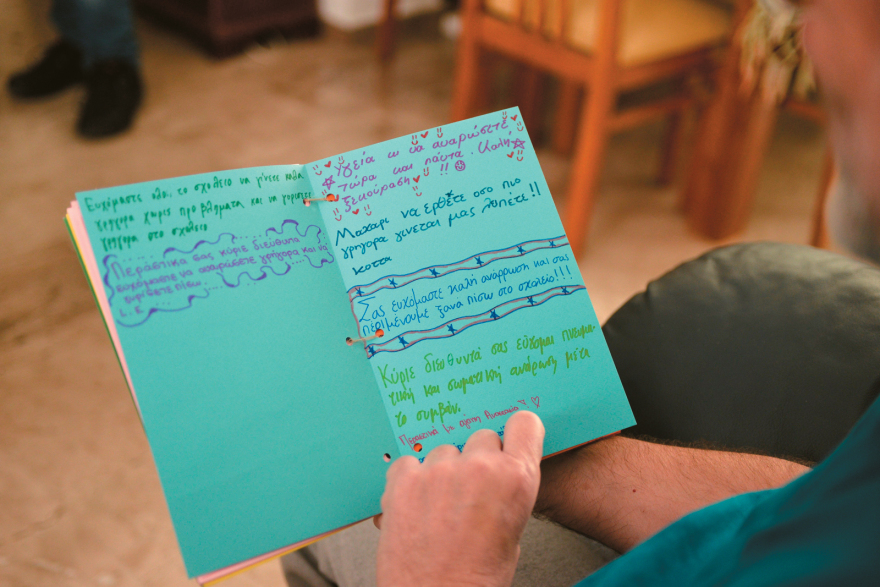 Ευχόμαστε όλα, το σχολείο να γίνετε καλα
γρήγορα χωρις προβλήματα και να γυρίσετε
γρήγορα στο σχολείο
Περαστικα σας κύριε διευθυντα
ευχόμαστε να αναρώσετε γρήγορα και να
γυρίσετε πίσω.
Υγεία κ να αναρώσετε
τώρα και πάντα. Καλή
ξεκούραση !!
Μακαρι να ερθετε οσο πιο
γρηγορα γινεται μας λυπετε!!
κοττα
Σας ευχόμαστε καλή ανάρρωση και σας
περιμένουμε ξανα πίσω στο σχολείο!!!
Κύριε διευθυντά σας εύχομαι πνευμα-
τική και σωματική ανάρωση μετα
το συμβάν.
Περαστικά με αγάπη